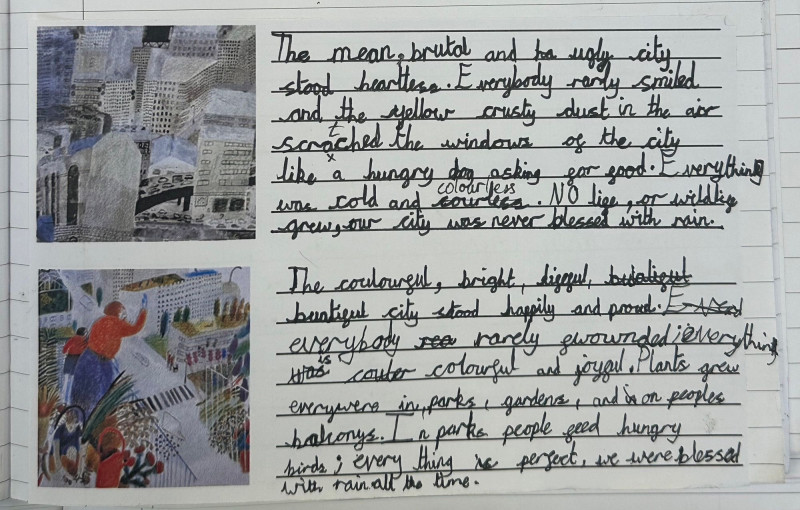 The mean, brutal and ha ugly city
stood heartless. Everybody rarly smiled
and the yellow crusty dust in the air
scratched the windows of the city
like a hungry dog asking for food. Everything
was cold and courless colourless. NO life, or wildlife
grew, our city was never blessed with rain.
The coulourful, bright, liggful, butaligut
beutiful city stood happily and proud. E
everybody rea rarely frwounded; everything
was is couler colourful and joyful. Plants grew
everywere in, parks, gardens, and is on peoples
balconys. In parks people feed hungry
birds; every thing is perfect, we were blessed
with rain all the time.